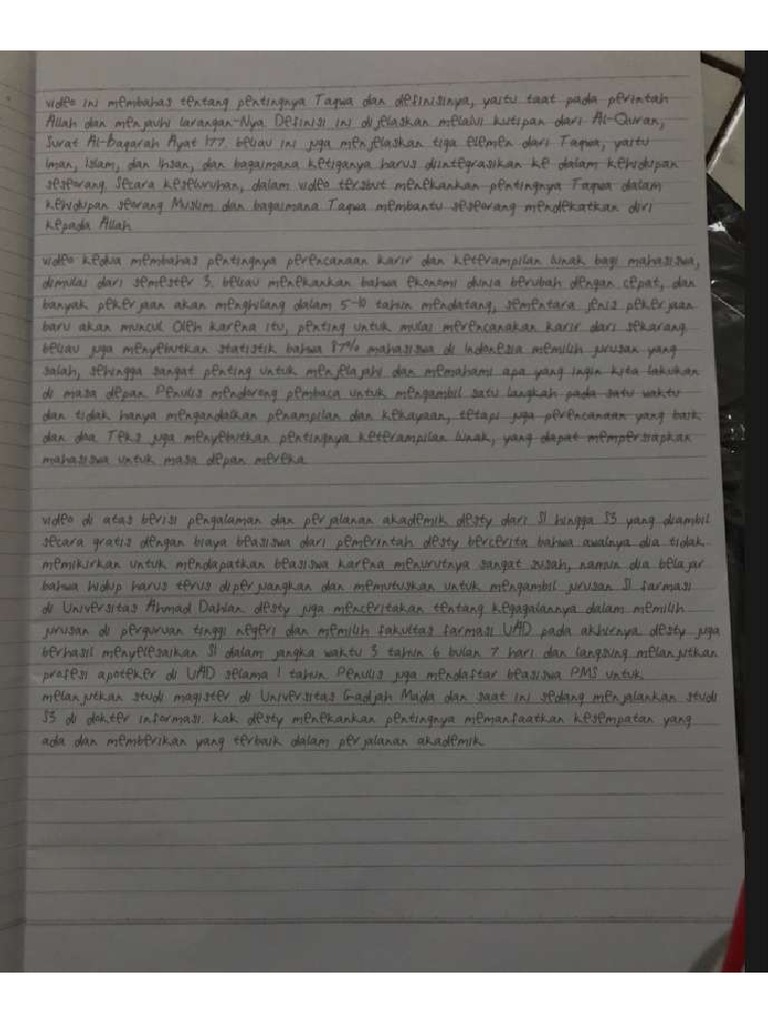 video ini membahas tentang pentingnya Taqwa dan definisinya, yaitu taat pada perintah
Allah dan menjauhi larangan-Nya. Definisi ini dijelaskan melalui kutipan dari Al-Quran,
Surat Al-Baqarah Ayat 177. beliau ini juga menjelaskan tiga elemen dari Taqwa, yaitu
Iman, Islam, dan Ihsan, dan bagaimana ketiganya harus diintegrasikan ke dalam kehidupan
seseorang. Secara keseluruhan, dalam video tersbut menekankan pentingnya Taqwa dalam
kehidupan seorang Muslim dan bagaimana Taqwa membantu seseorang mendekatkan diri
kepada Allah
video kedua membahas pentingnya perencanaan karir dan keterampilan lunak bagi mahasiswa,
dimulai dari semester 3. beliau menekankan bahwa ekonomi dunia berubah dengan cepat, dan
banyak pekerjaan akan menghilang dalam 5-10 tahun mendatang, sementara jenis pekerjaan
baru akan muncul Oleh karena itu, penting untuk mulai merencanakan karir dari sekarang.
beliau juga menyebutkan statistik bahwa 87% mahasiswa di Indonesia memilih jurusan yang
salah, sehingga sangat penting untuk menjelajahi dan memahami apa yang ingin kita lakukan
di masa depan. Penulis mendorong pembaca untuk mengambil satu langkah pada satu waktu
dan tidak hanya mengandalkan penampilan dan kekayaan, tetapi juga perencanaan yang baik
dan doa. Teks juga menyebutkan pentingnya keterampilan lunak, yang dapat mempersiapkan
mahasiswa untuk masa depan mereka.
video di atas berisi pengalaman dan perjalanan akademik desty dari S1 hingga S3 yang diambil
secara gratis dengan biaya beasiswa dari pemerintah desty bercerita bahwa awalnya dia tidak
memikirkan untuk mendapatkan beasiswa karena menurutnya sangat susah, namun dia belajar
bahwa hidup harus terus diperjuangkan dan memutuskan untuk mengambil jurusan S1 farmasi
di Universitas Ahmad Dahlan. desty juga menceritakan tentang kegagalannya dalam memilih
jurusan di perguruan tinggi negeri dan memilih fakultas farmasi UAD pada akhirnya. desty juga
berhasil menyelesaikan S1 dalam jangka waktu 3 tahun 6 bulan 7 hari dan langsung melanjutkan
profesi apoteker di UAD selama 1 tahun. Penulis juga mendaftar beasiswa PMS untuk
melanjutkan studi magister di Universitas Gadjah Mada dan saat ini sedang menjalankan studi
S3 di dokter informasi. kak desty menekankan pentingnya memanfaatkan kesempatan yang
ada dan memberikan yang terbaik dalam perjalanan akademik.